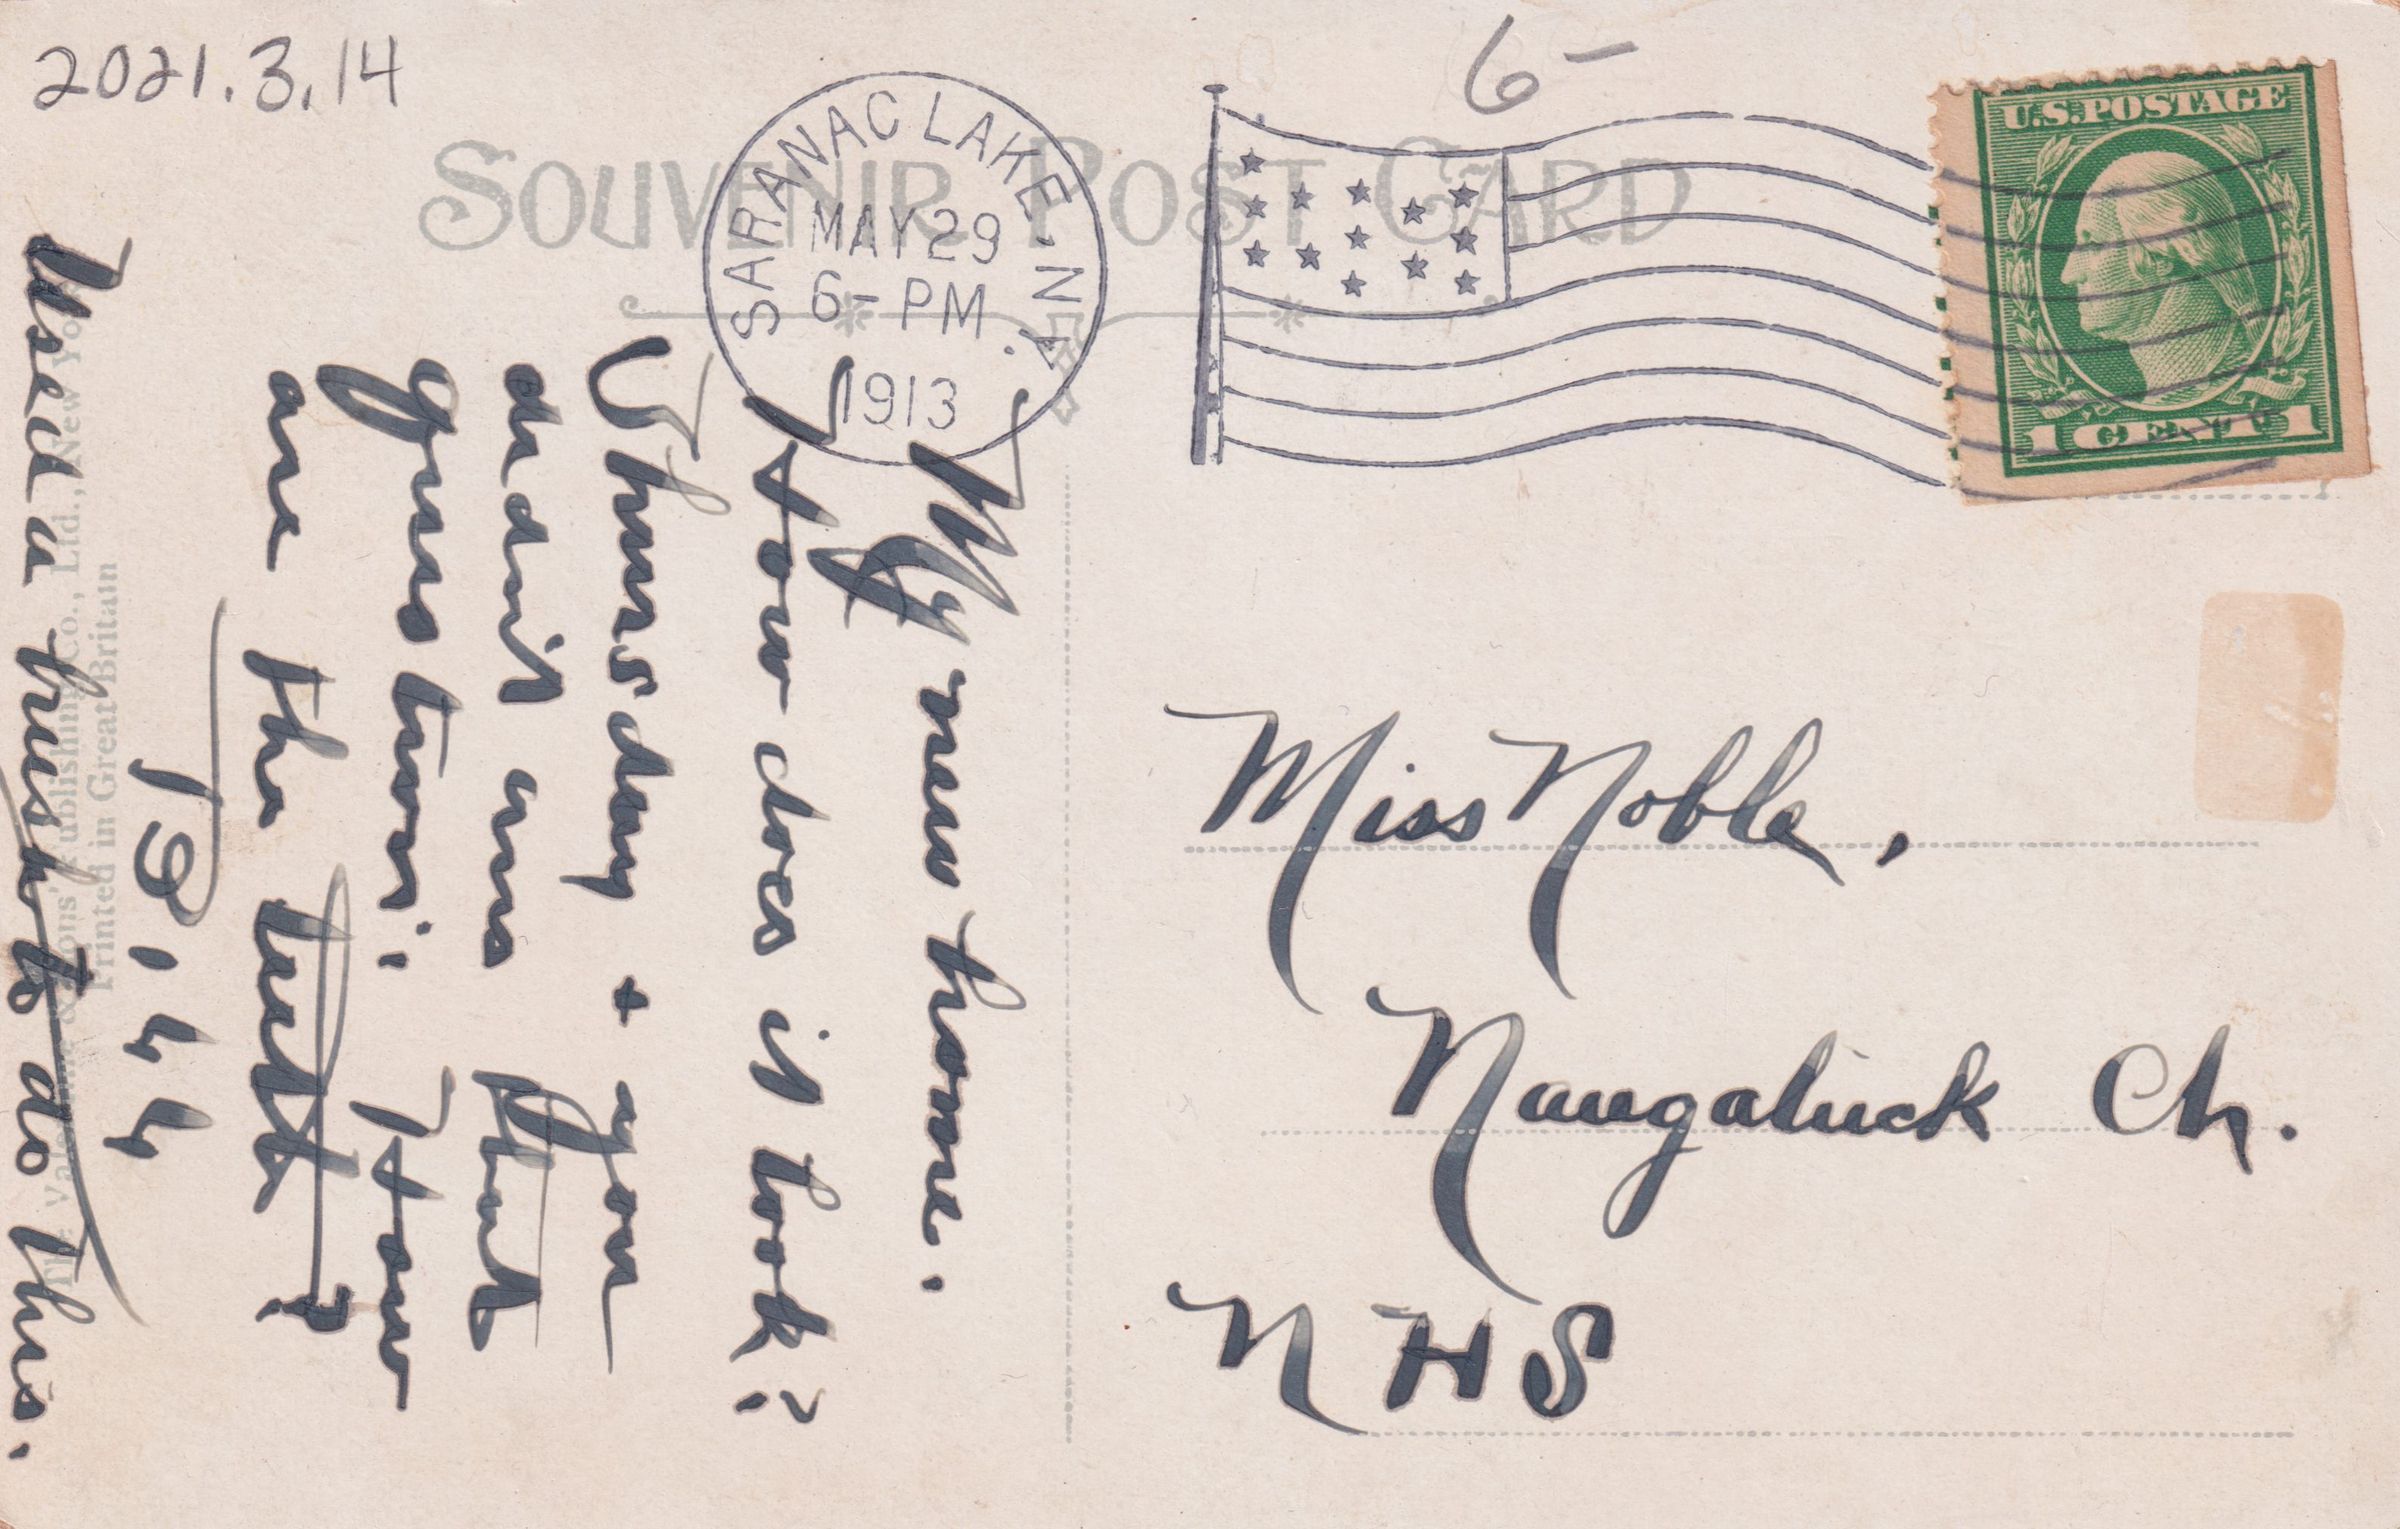 2021.3.14
6-
SOUVENIR POST CARD
SARANAC LAKE. N.Y.
MAY 29
6- PM
1913
U.S. POSTAGE
1 CENT 1
My new home.
How does it look?
Thursday + you
didnt ans that
question. How
are the
Used a brush to do this.
The Valentine & Sons' Publishing Co., Ltd., New York
Printed in Great Britain
Miss Noble,
Naugatuck Ch.
NHS